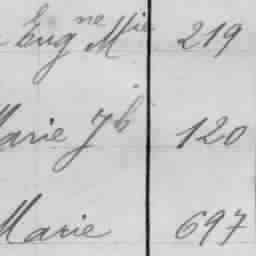 Eugne Mie 219
Marie Jh 120
Marie 697